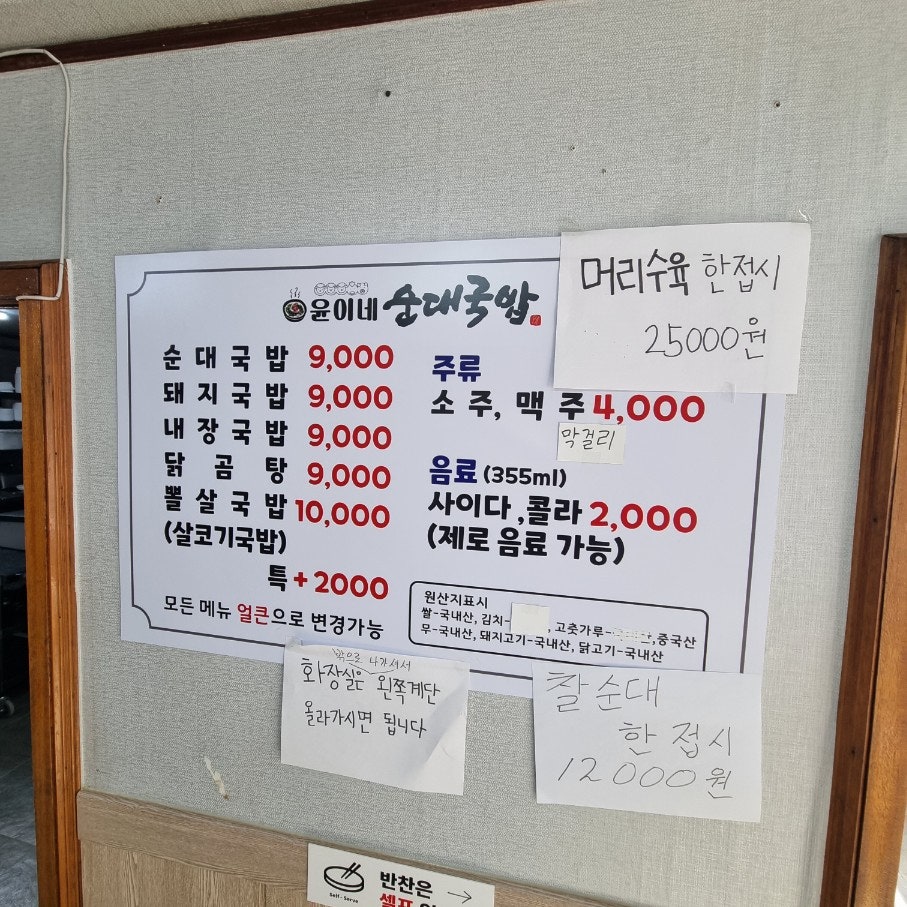 윤이네 순대국밥
순대국밥 9,000
돼지국밥 9,000
내장국밥 9,000
닭곰탕 9,000
뽈살국밥 10,000
(살코기국밥)
특 + 2000
모든 메뉴 얼큰으로 변경가능
주류
소주, 맥주 4,000
막걸리
음료 (355ml)
사이다, 콜라 2,000
(제로 음료 가능)
원산지표시
쌀-국내산, 김치- , 고춧가루- ,중국산
무-국내산, 돼지고기-국내산, 닭고기-국내산
머리수육 한접시
25000원
밖으로 나가셔서
화장실은 왼쪽계단
올라가시면 됩니다
찰순대
한접시
12000원
Self-Serve
반찬은
셀프